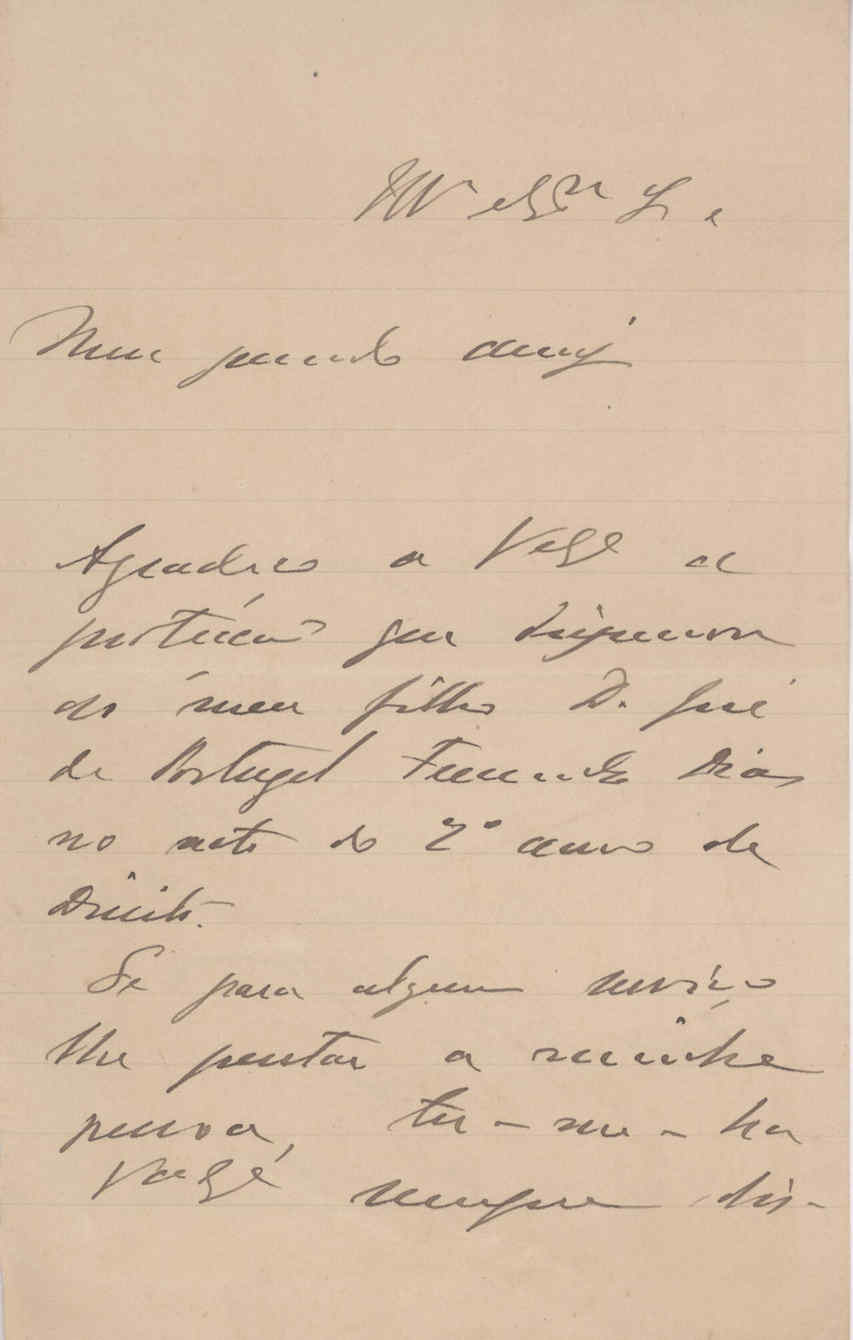 Illmo e Exmo Sr e
Meu prezado amigo
Agradeço a V. Exa a
protecção que dispensou
ao meu filho D. José
de Portugal Fernando Dias
no acto do 2º anno de
Direito.
Se para algum serviço
lhe prestar a minha
pessoa, ter-me-ha
V. Exa sempre dis-